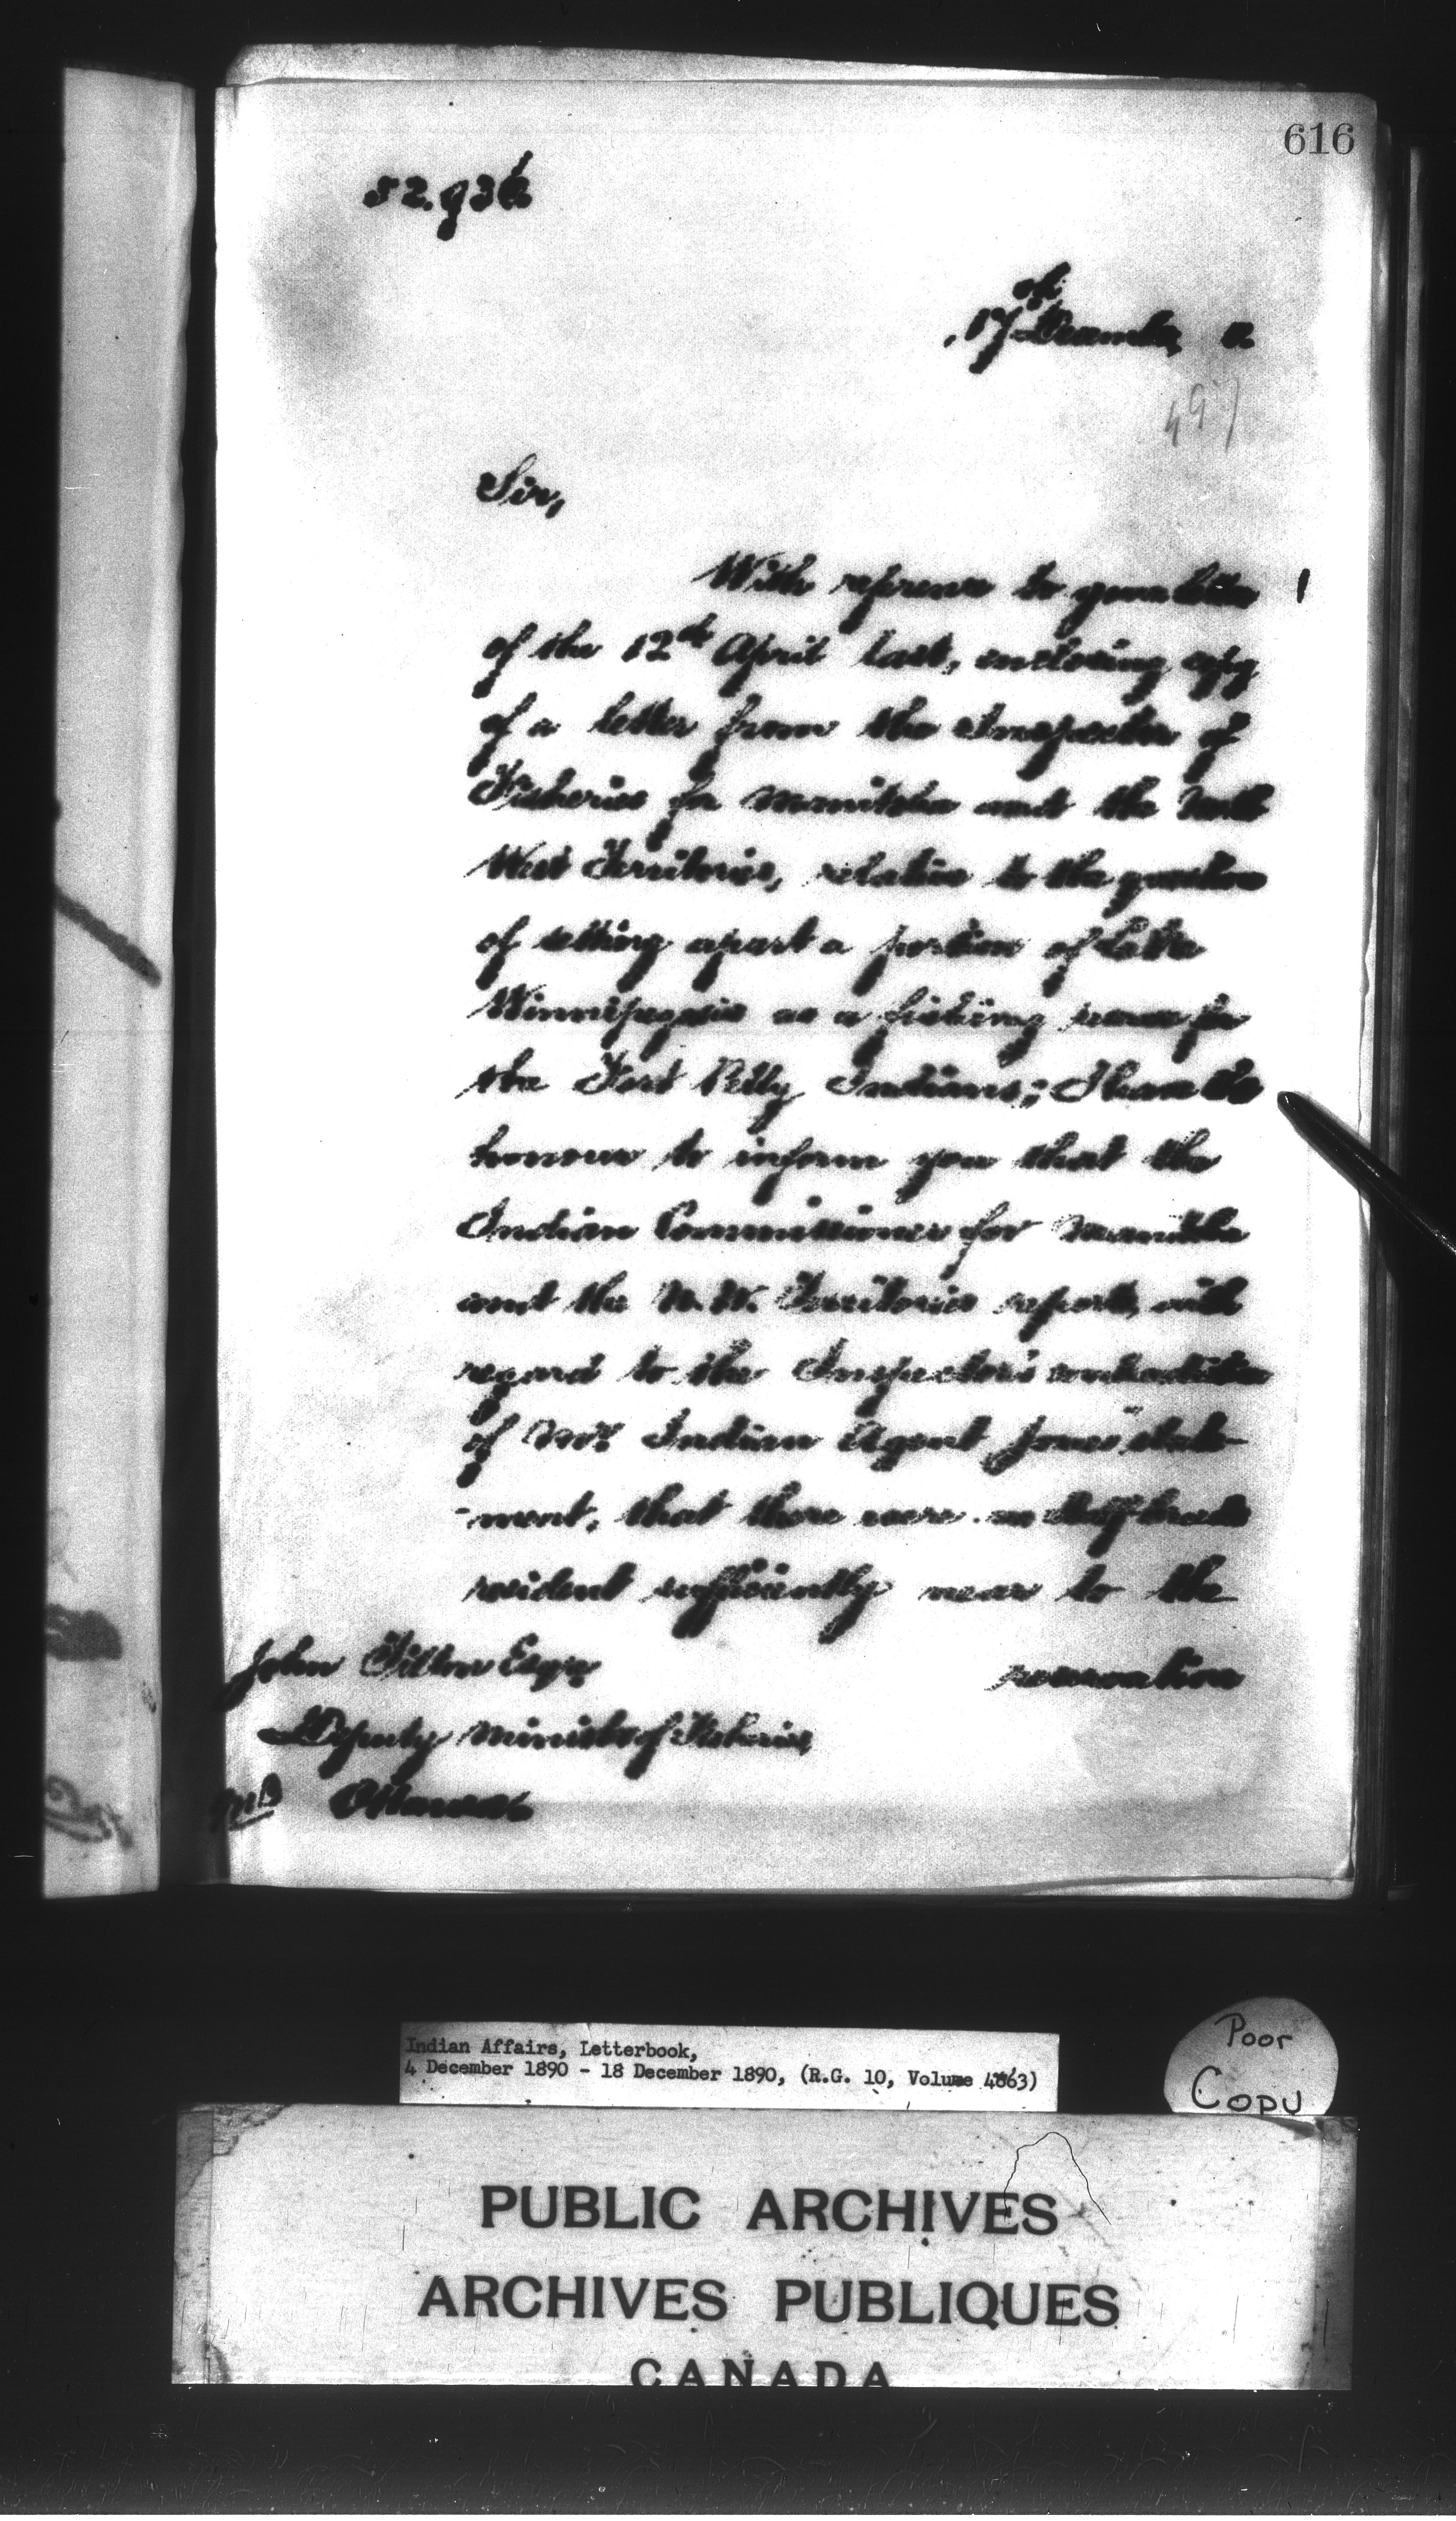 616
52.936
17th December 0
497
Sir,
With reference to your letter
of the 12th April last, enclosing copy
of a letter from the Inspector of
Fisheries for Manitoba and the North
West Territories, relative to the question
of setting apart a portion of Lake
Winnipegosis as a fishing reserve for
the Fort Pelly Indians; I have the
honour to inform you that the
Indian Commissioner for Manitoba
and the N.W. Territories reports, with
regard to the Inspector's contradiction
of Mr. Indian Agent Jones' state-
-ment, that there were no Half breeds
resident sufficiently near to the
reservation
John Tilton Esqre
Deputy Minister of Fisheries,
Ottawa
Indian Affairs, Letterbook,
4 December 1890 - 18 December 1890, (R.G. 10, Volume 4863)
Poor
Copy
PUBLIC ARCHIVES
ARCHIVES PUBLIQUES
CANADA